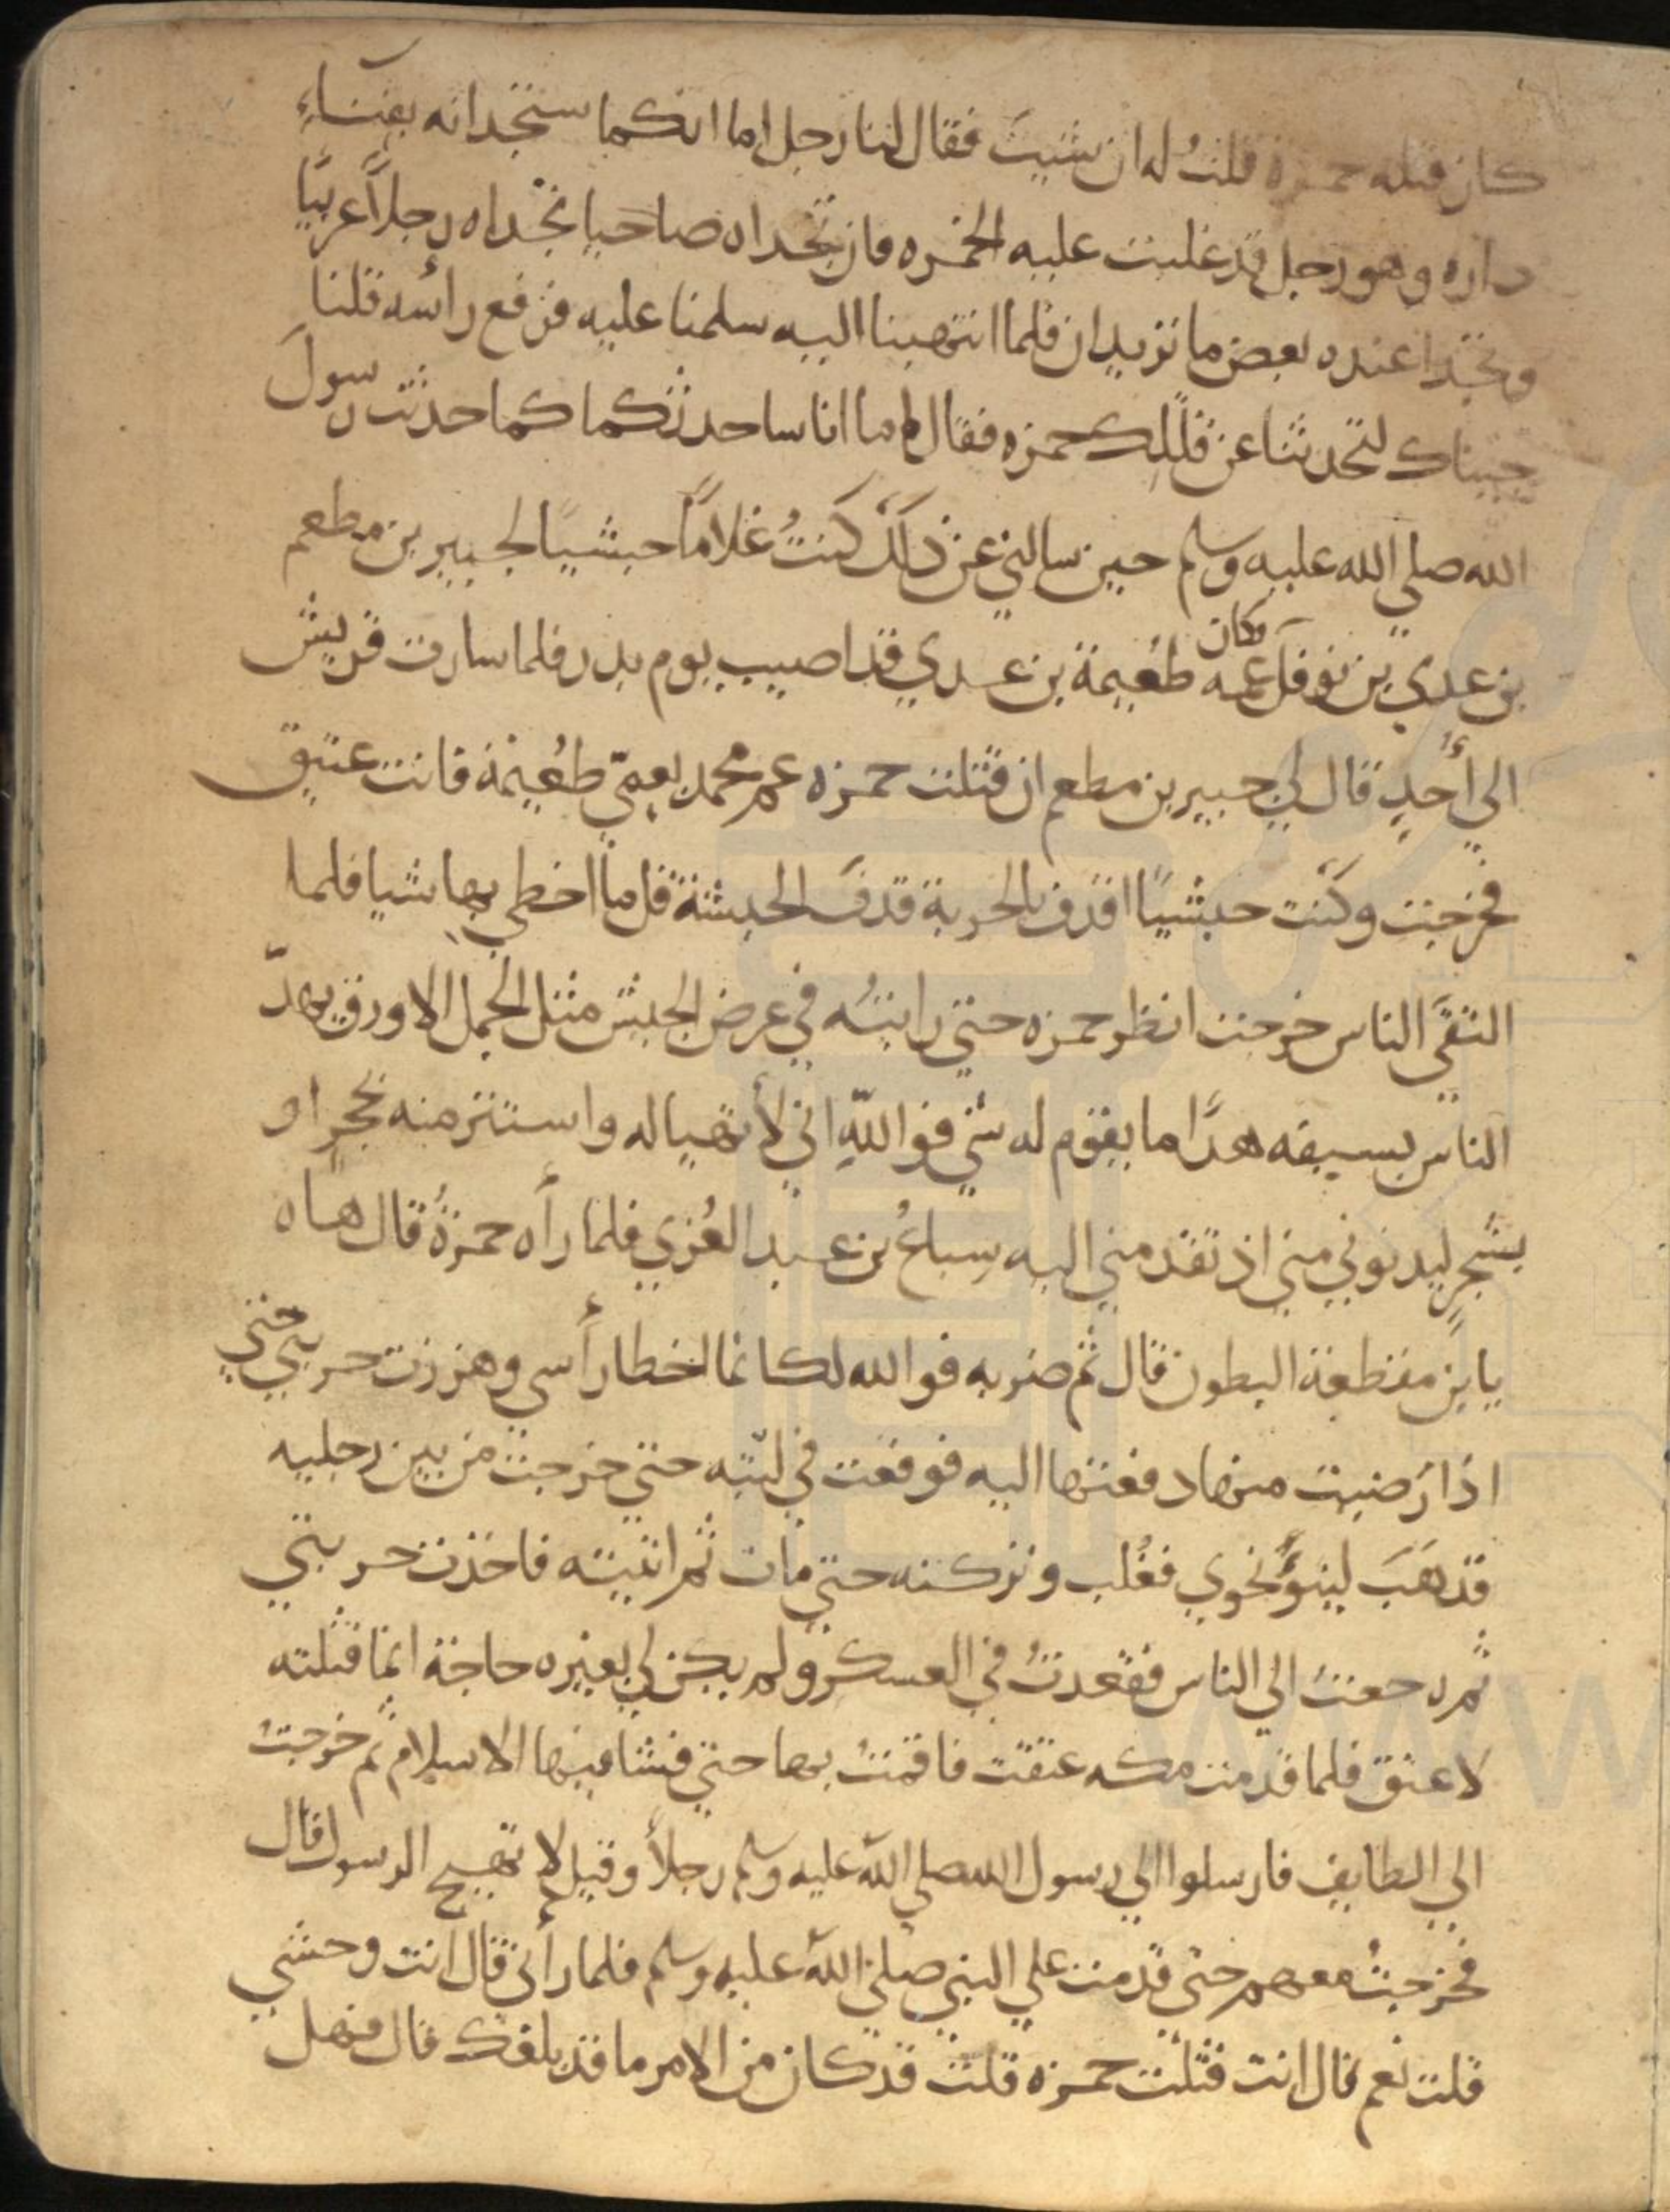 كان قتله حمزة قلتُ له ان شيتَ فقال لنا رجل اما انكما ستجدانه بفناءِ
داره وهو رجل قد غلبت عليه الخمره فان تجداه صاحيا تجداه رجلاً عربيًا
وتجدا عنده بعض ما تريدان فلما انتهينا اليه سلمنا عليه فرفع رأسه قلنا
جيناك لتحدثنا عن قتلك حمزه فقال اما انا ساحدثكما كما حدثت رسولَ
الله صلي الله عليه وسلم حين سالني عن ذلك كنتُ غلامًا حبشيًا لجبير بن مطعم
بن عدي بن نوفل وكان عمه طعيمة بن عدي قد اصيب يوم بدر فلما سارت قريش
الي أُحدٍ قال لي جبير بن مطعم ان قتلت حمزه عم محمد بعمّي طُعيمة فانت عتيق
فخرجت وكنت حبشيًا اقذف بالحربة قذفَ الحبشة قل ما اخطي بها شيا فلما
التقَي الناس خرجت انظر حمزه حتي رايتُه في عرض الجيش مثل الجمل الاورق يهدّ
الناس بسيفه هدًا ما يقوم له شي فوا اللهِ اني لأتهيا له واستتر منه بحجرٍ او
بشجرٍ ليدنو ني مني اذ تقدمني اليه سِباعُ بن عبد العُزي فلما رأه حمزةُ قال هاه
يا بن مقطعة البطون قال ثم ضربه فوالله لكانما اخطا رأسي وهززت حربتي حتي
اذا رَضيت منها دفعتها اليه فوقعت في لبّته حتي خرجت من بين رجليه
قذهَبَ لينوُّ نحوي فغُلب وتركته حتي مات ثم اتيته فاخذت حربتي
ثم رجعتُ الي الناس فقعدتُ في العسكر ولم يكن لي بغيره حاجة انما قتلته
لاعتق فلما قدمت مكه عتقت فاقمتُ بها حتي فشا فيها الاسلام ثم خرجتُ
الي الطايف فارسلوا الي رسول الله صلي الله عليه وسلم رجلاً وقيل لا تهيج الرسول قال
فخرجتُ معهم حتي قدمت علي النبي صلي الله عليه وسلم فلما رأني قال انت وحشي
قلت نعم قال انت قتلت حمزه قلت قد كان من الامر ما قد بلغك قال فهل